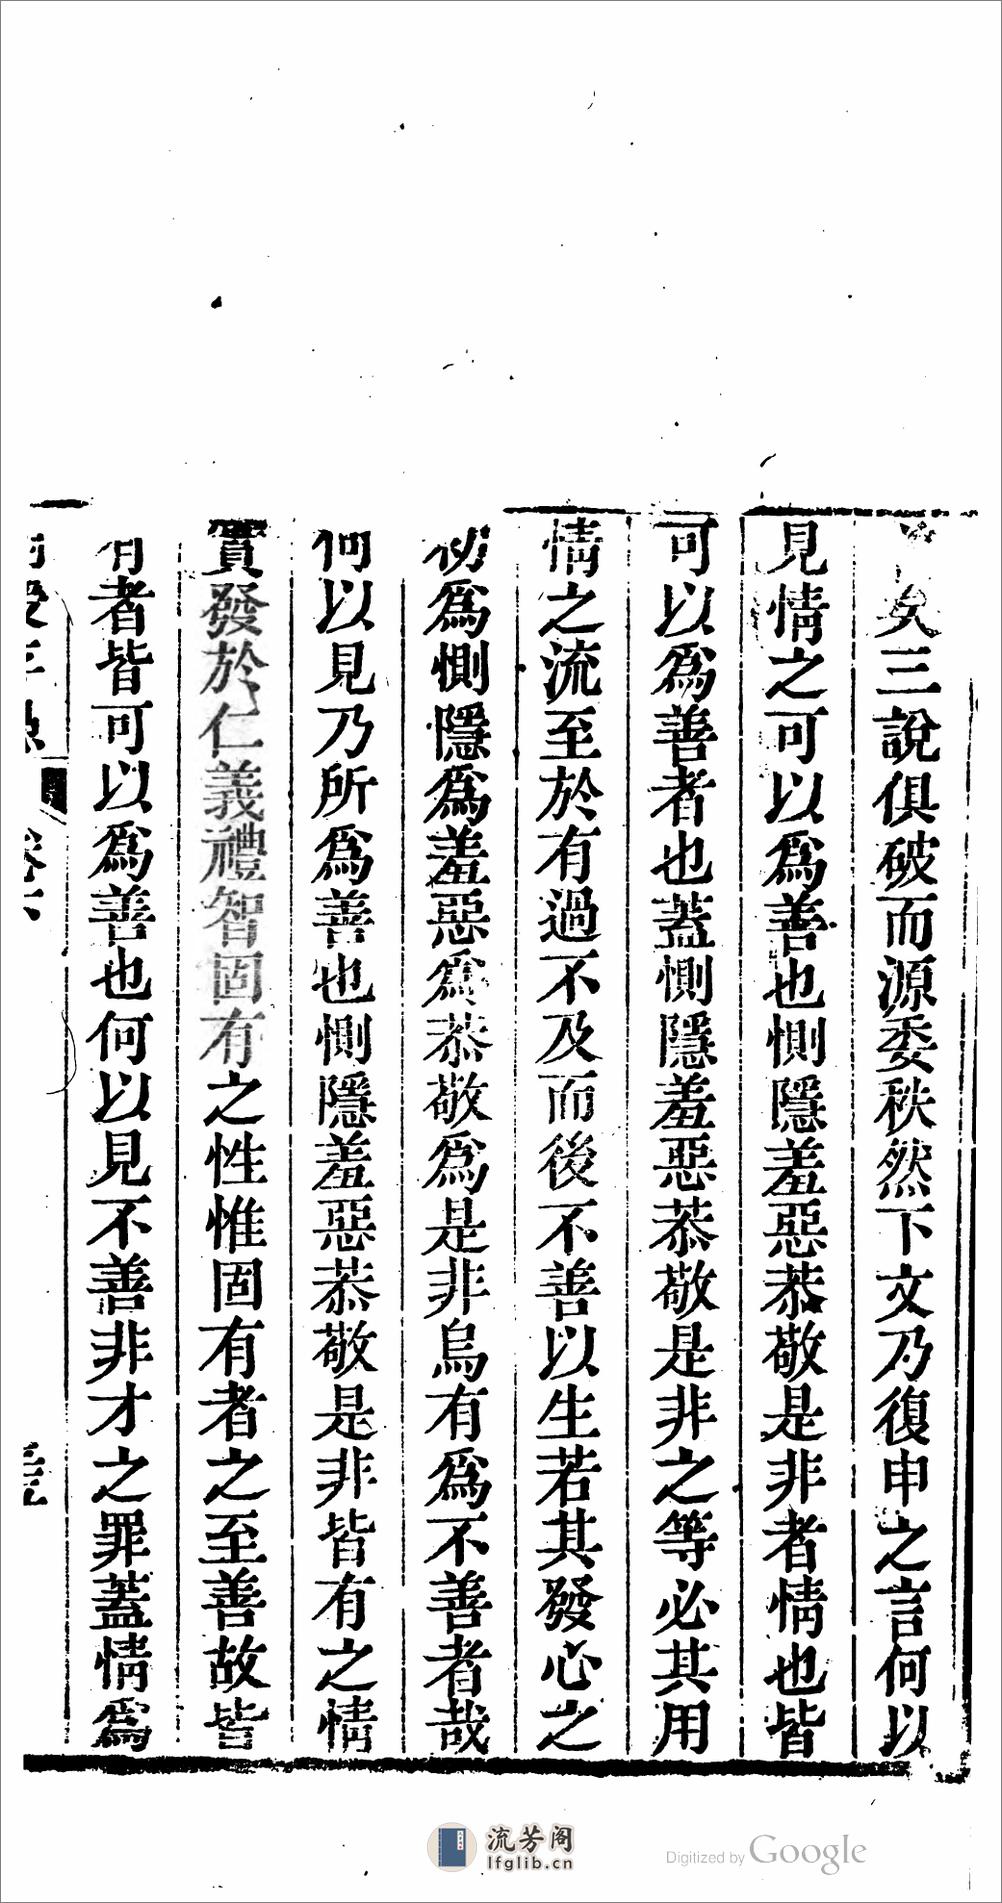 矣三說俱破而源委秩然下文乃復申之言何以
見情之可以爲善也惻隱羞惡恭敬是非者情也皆
可以爲善者也蓋惻隱羞惡恭敬是非之等必其用
情之流至於有過不及而後不善以生若其發心之
初爲惻隱爲羞惡爲恭敬爲是非烏有爲不善者哉
何以見乃所爲善也惻隱羞惡恭敬是非皆有之情
實發於仁義禮智固有之性惟固有者之至善故皆
有者皆可以爲善也何以見不善非才之罪蓋情爲
卷六
流芳阁
lfglib.cn
Digitized by Google